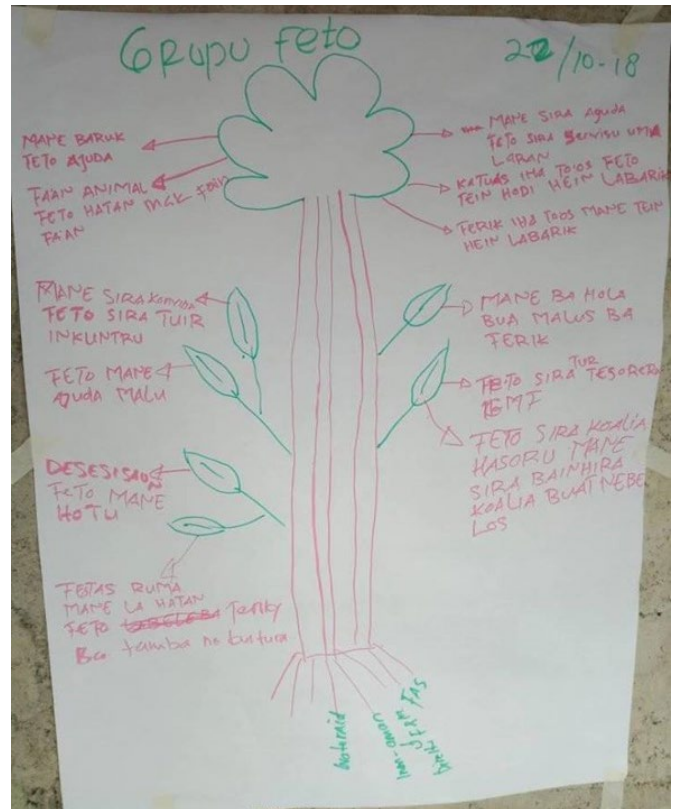 Grupu feto
22/10-18
MANE BARUK
FETO AJUDA
FAAN ANIMAL
FETO HATAN MAK foin
FAAN
MANE SIRA AJUDA
FETO SIRA SERVISU UMA
LARAN
KATUAS IHA TO'OS FETO
TEIN HODI HEIN LABARIK
FERIK IHA TOOS MANE TEIN
HEIN LABARIK
MANE SIRA konvida
FETO SIRA TUIR
INKUNTRU
FETO MANE
AJUDA MALU
DESESISAUN
FETO MANE
HOTU
FESTAS RUMA
MANE LA HATAN
FETO
tamba no kultura
MANE BA HOLA
BUA MALUS BA
FERIK
FETO SIRA TUR TESORERA
FETO SIRA KOALIA
HASORU MANE
SIRA BAINHIRA
KOALIA BUAT NEBE
LOS